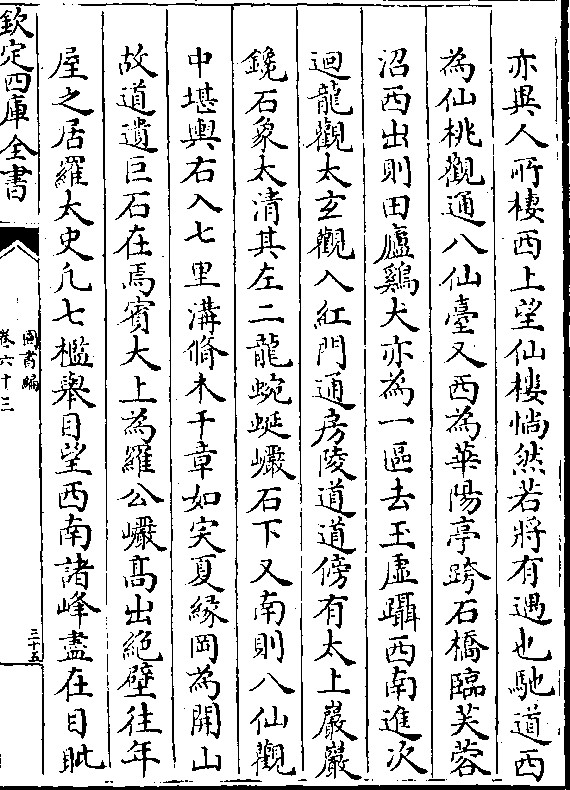 亦異人所棲西上望仙樓惝然若將有遇也馳道西
為仙桃觀通八仙臺又西為華陽亭跨石橋臨芙蓉
沼西出則田廬鷄犬亦為一區去玉虛躡西南進次
迴龍觀太玄觀入紅門通房陵道道傍有太上巖巖
鑱石象太清其左二龍蜿蜒巗石下又南則八仙觀
中堪輿右入七里溝脩木千章如宊夏緣岡為開山
故道遺巨石在焉賓大上為羅公巗髙出絶壁往年
屋之居羅太史凡七檻舉目望西南諸峰盡在目眦
欽定四庫全書
圖書編
卷六十三
三十五